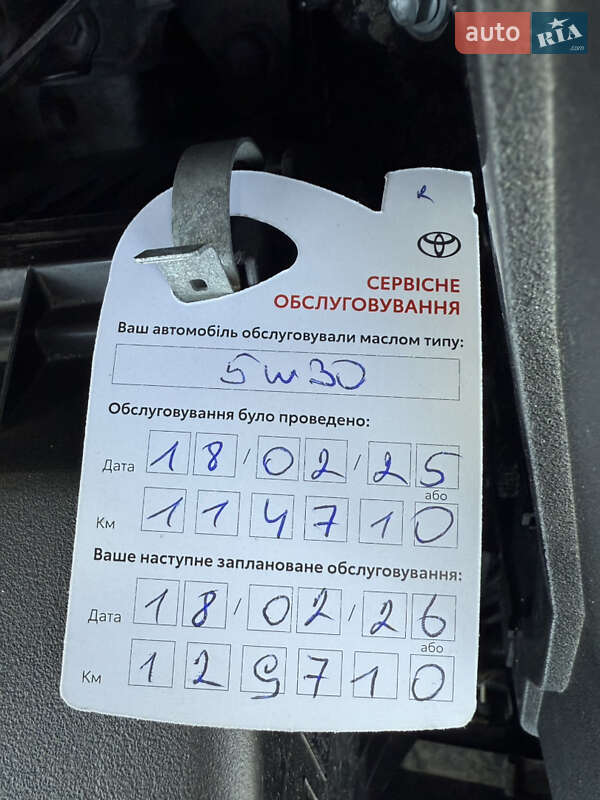 auto RIA.com
СЕРВІСНЕ
ОБСЛУГОВУВАННЯ
Ваш автомобіль обслуговували маслом типу:
5w30
Обслуговування було проведено:
Дата 18/02/25
або
Км 114710
Ваше наступне заплановане обслуговування:
Дата 18/02/26
або
Км 129710